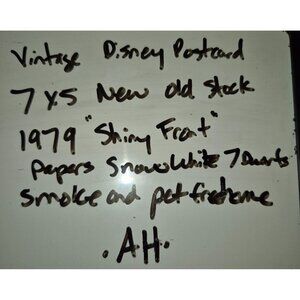 Vintage Disney Postcard
7x5 New old Stock
1979 "Shiny Front"
Papers Snow White 7 Dwarfs
Smoke and pet free home
. AH .